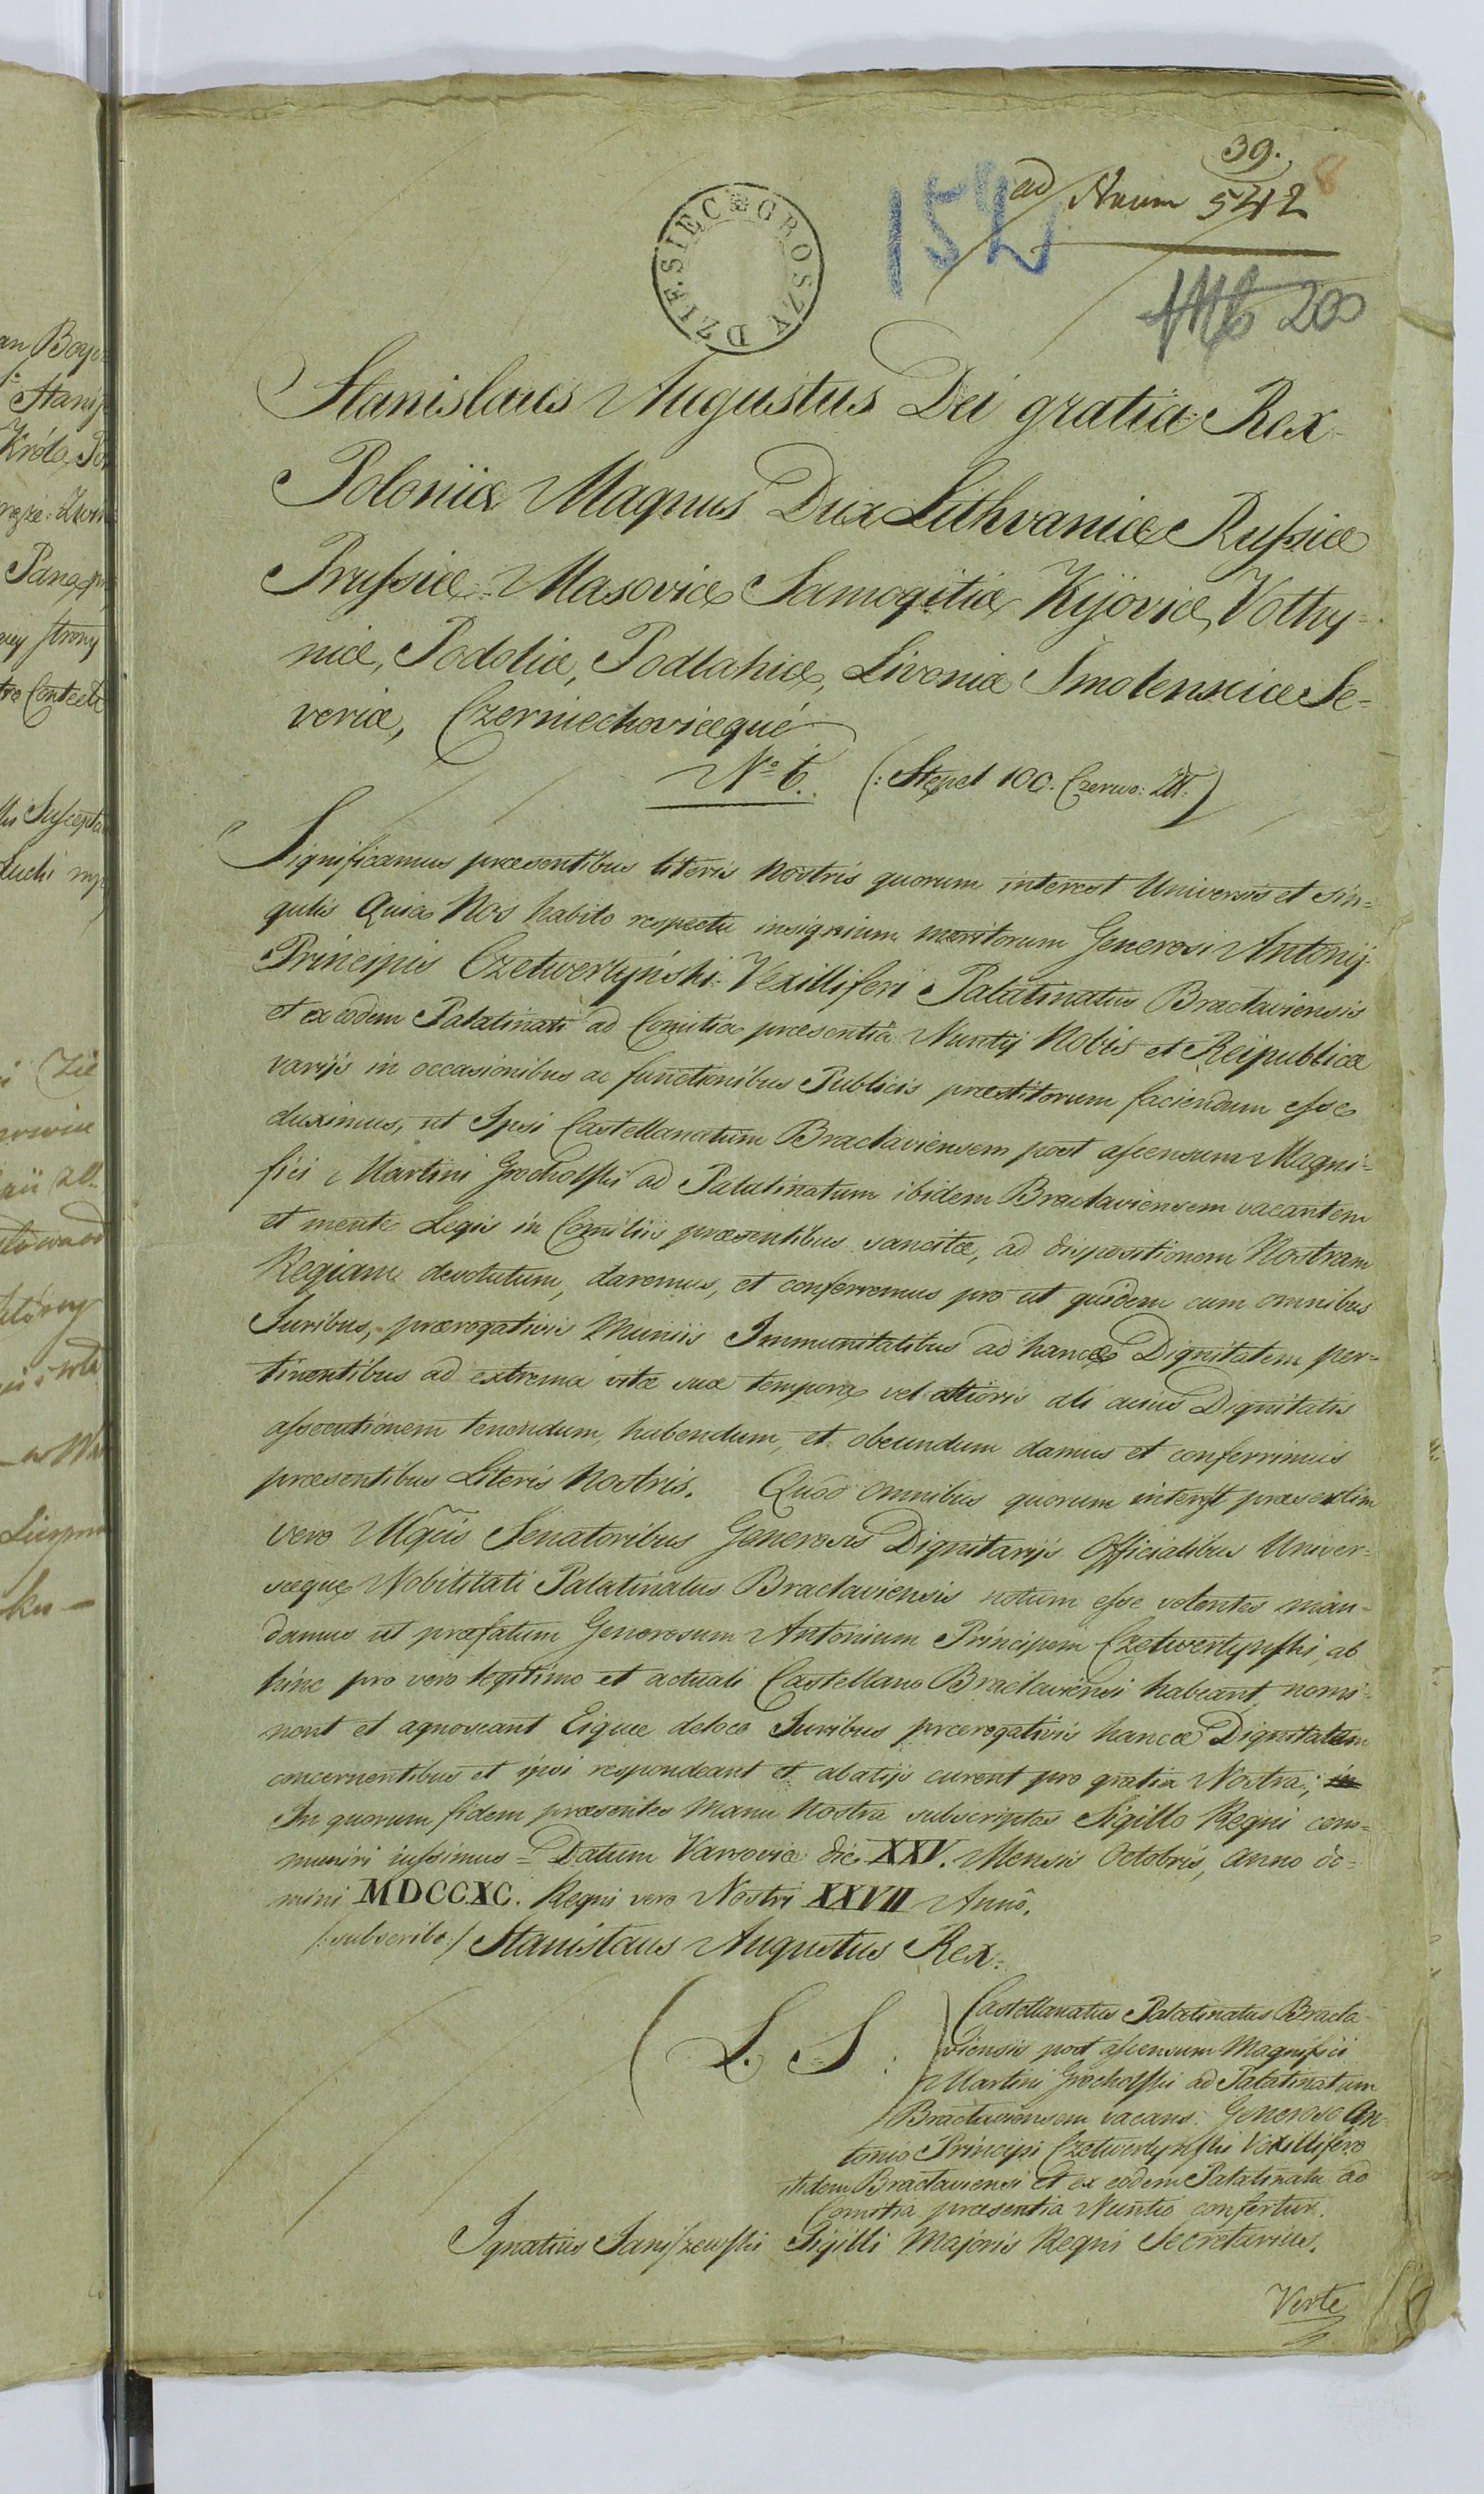 39.
8
ad Num 542
152
200
DZIESIĘC GROSZY
Stanislaus Augustus Dei gratia Rex
Poloniæ Magnus Dux Lithvaniæ Rufsiæ
Prufsiæ Masoviæ Samogitiæ Kijoviæ, Volhy=
niæ, Podoliæ, Podlahiæ, Livoniæ Smolensciæ Se=
veriæ, Czerniechoviæqué
N<sup>o</sup> 6. (: Stępel 100. Czerwo: Zł:)
Significamus præsentibus literis Nostris quorum interest Universis et sin=
gulis Quia Nos habito respectu insignium meritorum Generosi Antonij
Principis Czetwertyński Vexilliferi Palatinatus Braclaviensis
et ex eodem Palatinatu ad Comitia præsentia Nuntij Nobis et Reipublicæ
varijs in occasionibus ac functionibus Publicis præstitorum faciendum efse
duximus, ut Ipsi Castellanatum Braclaviensem post afcensum Magni=
fici Martini Grocholfki ad Palatinatum ibidem Braclaviensem vacantem
et mente Legis in Comitiis præsentibus sancitæ, ad dispositionem Nostram
Regiam devolutum, daremus, et conferremus pro ut quidem cum omnibus
Juribus, prærogativis Muniis Immunitatibus ad hancce Dignitatem per=
tinentibus ad extrema vitæ suæ tempora vel altioris ali cuius Dignitatis
afsecutionem tenendum, habendum, et obeundum damus et conferrimus
præsentibus Literis Nostris. Quod omnibus quorum interest præsertim
vero Mgñis Senatoribus Generosis Dignitarijs Officialibus Univer=
sæque Nobilitati Palatinatus Braclaviensis notum efse volentes man=
damus ut præfatum Generosum Antonium Principem Czetwertynfki ab
hinc pro vero legitimo et actuali Castellano Braclaviensi habeant, nomi=
nent et agnoscant Eique deloco Juribus prærogativis hancce Dignitatem
concernentibus et ipsi respondeant et abalijs curent pro gratia Nostra; in
In quorum fidem præsentes Manu Nostra subscriptas Sigillo Regni com=
muniri iufsimus = Datum Varsoviæ die XXV. Mensis Octobris, Anno do=
mini MDCCXC. Regni vero Nostri XXVII Anno.
/:subscribo:/ Stanislaus Augustus Rex.
(L. S:)
Castellanatus Palatinatus Bracla=
viensis post afcensum Magnifici
Martini Grocholfki ad Palatinatum
Braclaviensem vacans. Generoso An=
tonio Principi Czetwertynfki Vexillifero
itidem Braclaviensi et ex eodem Palatinatu ad
Comitia præsentia Nuntio confertur.
Ignatius Janifzewfki Sigilli Majoris Regni Secretarius.
Verte